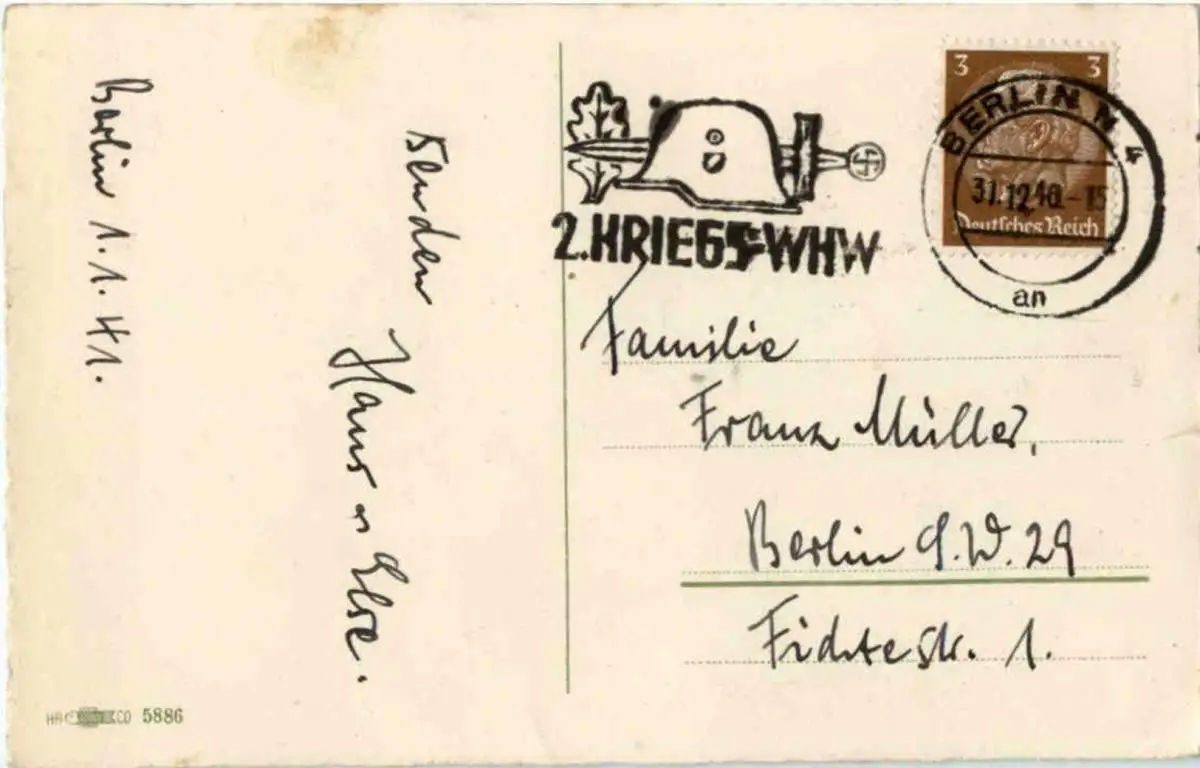 Berlin 1.1.41.
senden
Hans u Else.
2. KRIEGS-WHW
3 3
Deutsches Reich
BERLIN N 4
31.12.40.-15
an
Familie
Franz Müller,
Berlin S.W. 29
Fichtestr. 1.
5886